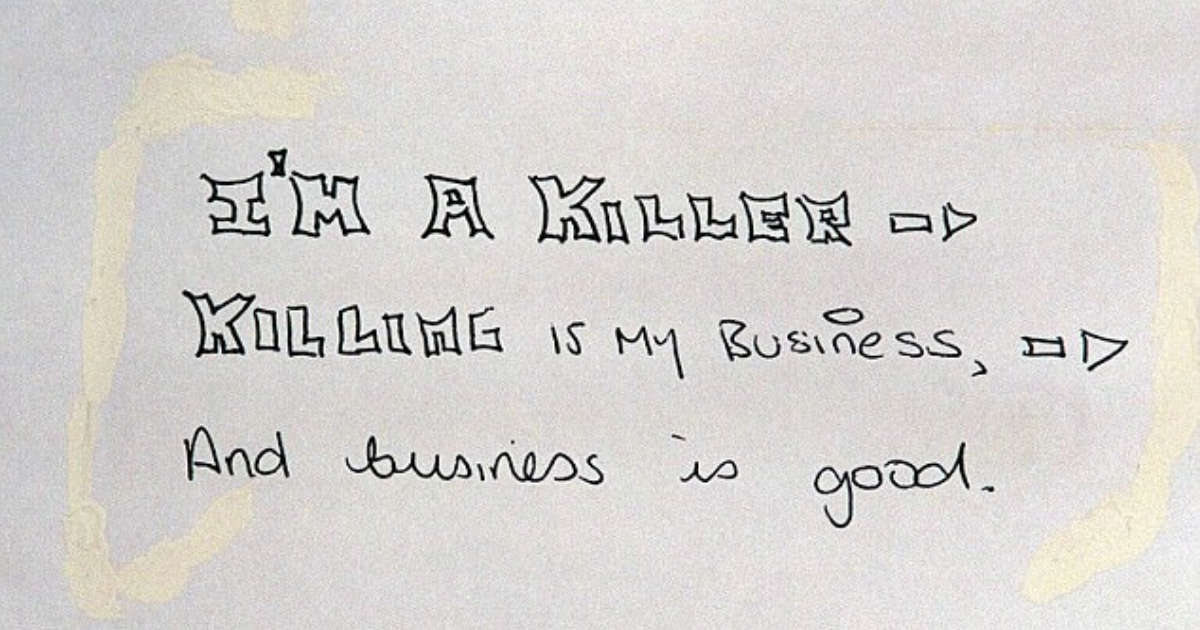 I'M A KILLER ⇨
KILLING IS MY BUSINESS, ⇨
And business is good.